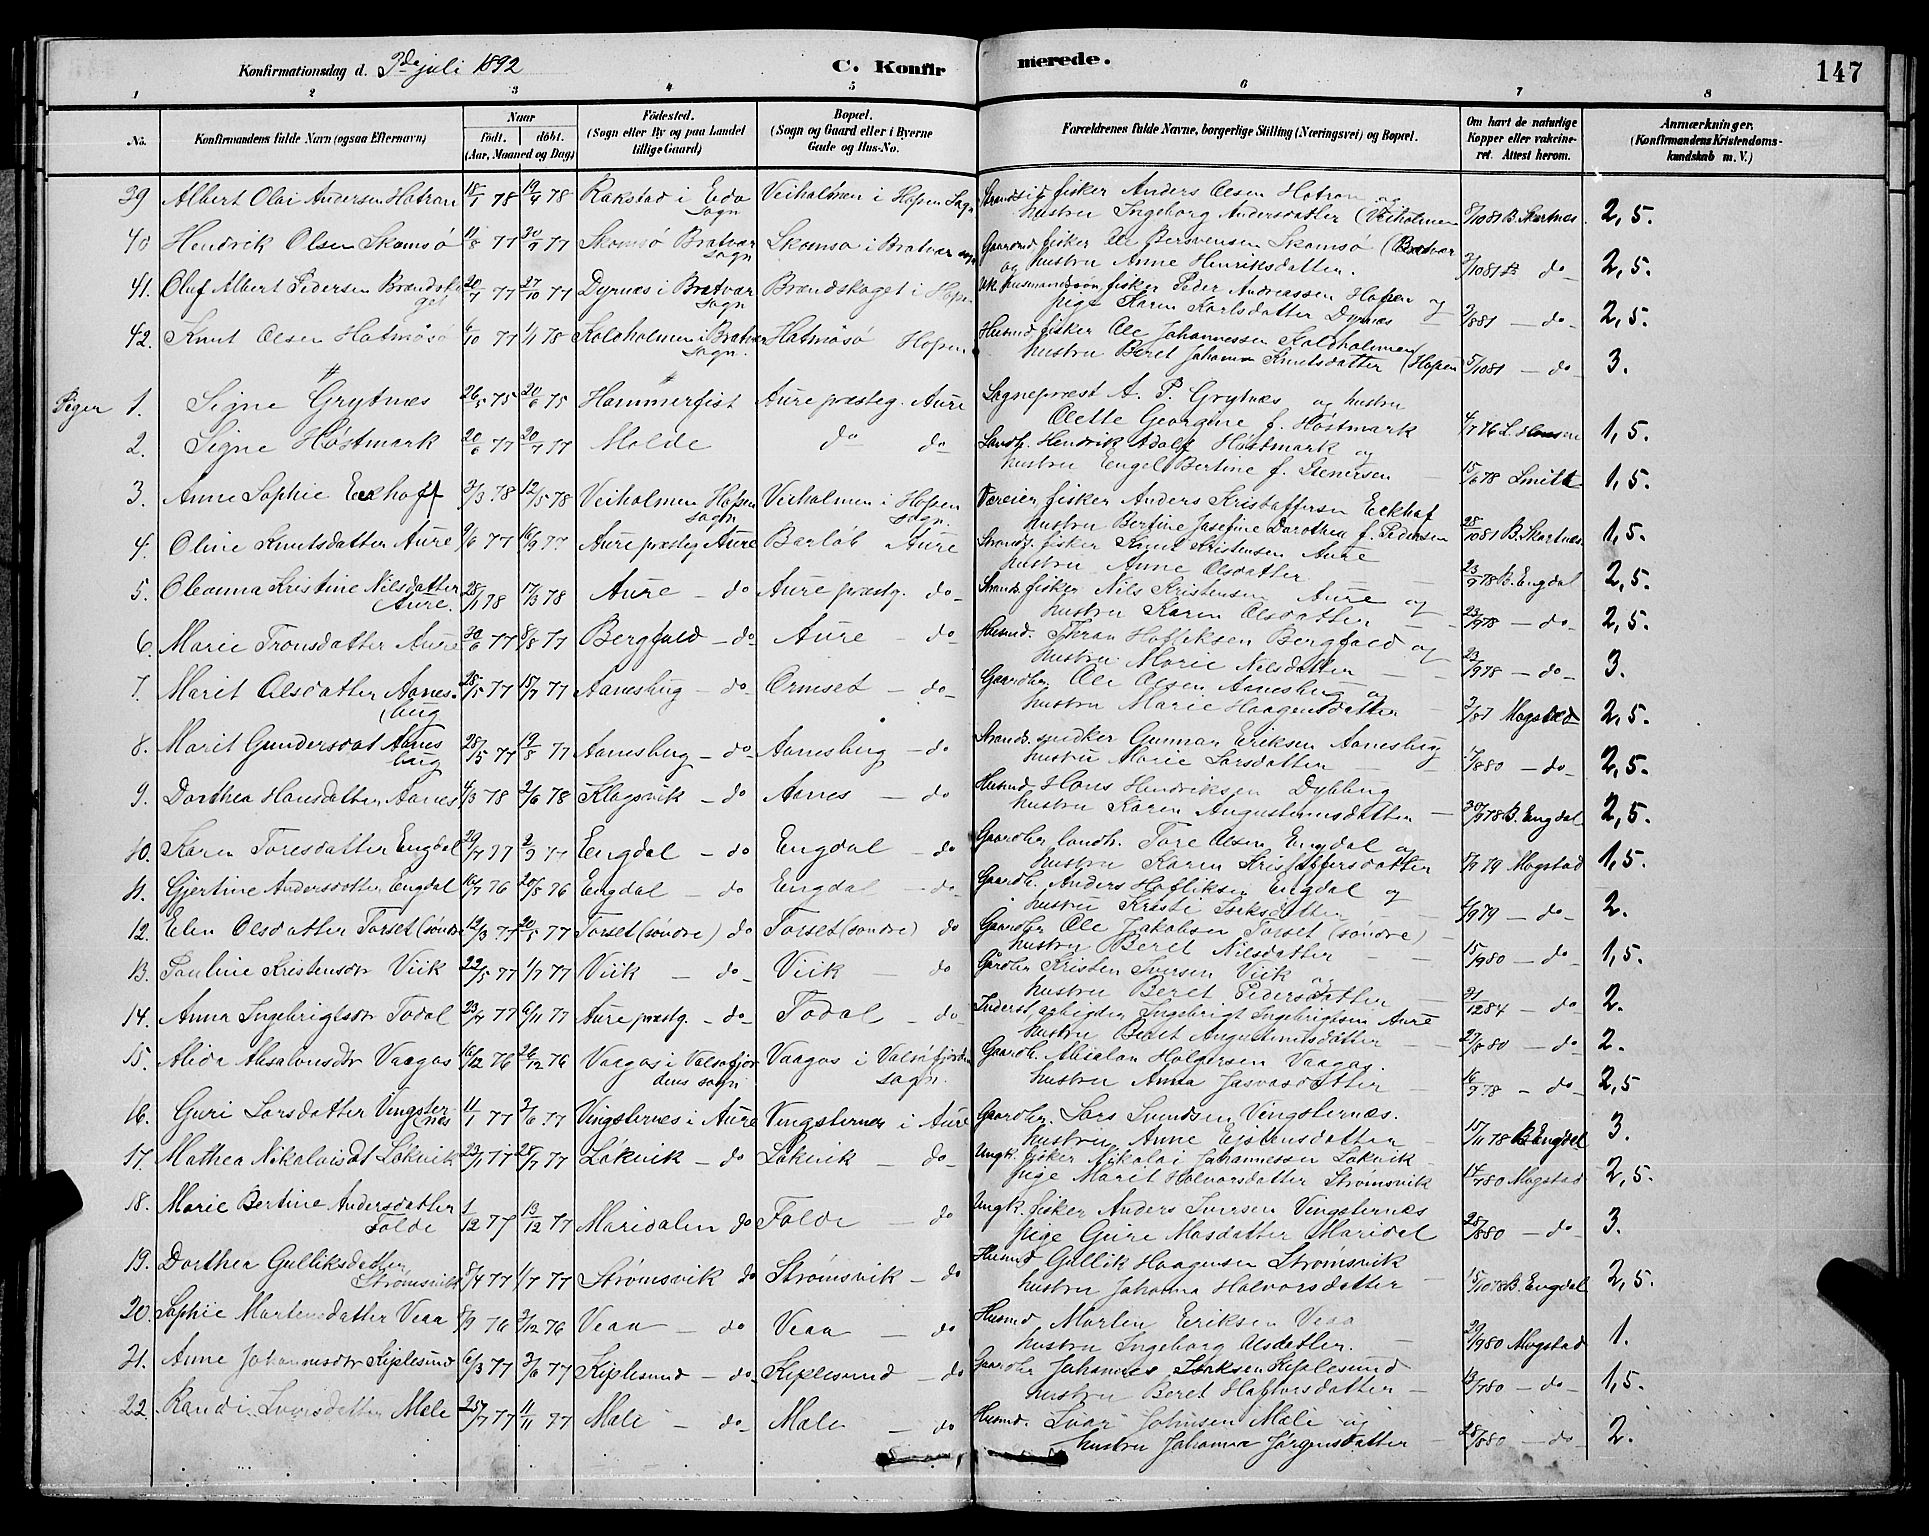 Konfirmationsdag d. 3de juli 1892
C. Konfirmerede.
147
1 2 3 4 5 6 7 8
No.
Konfirmandens fulde Navn (ogsaa Efternavn)
Naar
födt. döbt.
(Aar, Maaned og Dag)
Födested.
(Sogn eller By og paa Landet
tillige Gaard)
Bopæl.
(Sogn og Gaard eller i Byerne
Gade og Hus-No.
Forældrenes fulde Navne, borgerlige Stilling (Næringsvei) og Bopæl.
Om havt de naturlige
Kopper eller vakcine-
ret. Attest herom.
Anmærkninger.
(Konfirmandens Kristendoms-
kundskab m. V.)
39 Albert Olai Andersen Hatran 18/1 78 19/4 78 Rakstad i Edø Sogn Veiholmen i Hopen Sogn Strandsid. fisker Anders Olsen Hatran og
hustru Ingeborg Andersdatter (Veiholmen 8/10 81 B. Skartnes 2,5.
40 Hendrik Olsen Skomsø 11/8 77 30/9 77 Skomsø Bratvær sogn Skomsø i Bratvær sogn Gaardmd. fisker Ole Bersvensen Skomsø (Bratvær
og hustru Anne Henriksdatter. 3/10 81 B do 2,5.
41. Oluf Albert Pedersen Brandska get 20/7 77 27/10 77 Dyrnæs i Bratvær sogn Brandskaget i Hopen Uk. husmandssøn fisker Peder Andreassen Hopen og
pige Karen Karlsdatter Dyrnæs 2/8 81 — do 2,5.
42. Knut Olsen Hatmøsø 6/10 77 1/1 78 Koldholmen i Bratvær Sogn. Hatmøsø Hopen Husmd fisker Ole Johannessen Koldholmen
hustru Beret Johanna Knutsdatter (Hopen 5/10 81 — do 3.
Piger 1. Signe Grytnæs 26/5 75 20/6 75 Hammerfest Aure præsteg. Aure Sognepræst A. P. Grytnæs og hustru
Olette Georgine f. Høstmark 4/7 76 L. Hansen 1,5.
2. Signe Høstmark 20/6 77 20/7 77 Molde do do Landh. Hendrik Adolf Høstmark og
hustru Engel Bertine f. Stenersen 15/6 78 Smitt 1,5.
3. Anne Sophie Eckhoff 2/3 78 12/5 78 Veiholmen Hopen sogn Veiholmen i Hopen sogn. Væreier fisker Anders Kristoffersen Eckhof
hustru Bertine Josefine Dorothea f. Pedersen 28/10 81 B. Skartnes. 1,5.
4. Oline Knutsdatter Aure 9/6 77 16/9 77 Aure præsteg Aure Barløb Aure Strands. fisker Knut Kristensen Aure
hustru Anne Olsdatter 23/9 78 B. Engdal 2,5.
5. Oleanna Kristine Nilsdatter Aure. 28/1 78 17/3 78 Aure — do Aure præstg. do Strands. fisker Nils Kristensen Aure og
hustru Karen Olsdatter — 23/9 78 — do 2,5.
6. Marie Tronsdatter Aure 30/6 77 8/8 77 Bergfald — do Aure — do Husmd. Thran Hofliksen Bergfald og
hustru Marie Nilsdatter — 23/9 78 — do 3.
7. Marit Olsdatter Aanes- bug 28/5 77 15/7 77 Aanesbug — do Ormset — do Gaardbr. Ole Olsen Aanesbug og
hustru Marie Haagensdatter 3/8 7 Mogstad 2,5.
8. Marit Gundersdat Aanes bug 28/5 77 19/8 77 Aanesbug — do Aanesbug — do Strands. snedker Gunnar Eriksen Aanesbug
hustru Marie Larsdatter — 7/8 80 — do 2,5.
9. Dorthea Hansdatter Aanes 4/3 78 2/6 78 Klagsvik — do Aanes — do Husmd Hans Hendriksen Dybbug
hustru Karen Augustinusdatter — 30/9 78 B. Engdal 2,5.
10. Karen Toresdatter Engdal 29/7 77 2/9 77 Engdal — do Engdal — do Gaardbr landh. Tore Olsen Engdal og
hustru Karen Kristoffersdatter 8/9 79 Mogstad 1,5.
11. Gjertine Andersdatter Engdal 16/7 76 20/8 76 Engdal — do Engdal — do. Gaardb. Anders Hofliksen Engdal og
hustru Kristi Isaksdatter — 4/9 79 — do 2.
12. Elen Olsdatter Torset (søndre 12/3 77 20/5 77 Torset (søndre) do Torset (søndre) do Gaardbr Ole Jakobsen Torset (søndre) —
hustru Beret Nilsdatter — 15/9 80 — do 1,5.
13. Pauline Kristensdr Viik 22/5 77 1/7 77 Viik — do Viik — do Gårdbr Kristen Iversen Viik og
hustru Beret Pedersdatter 31/12 84 — do 2.
14. Anna Ingebrigtsdr Todal 23/9 77 6/11 77 Aure præstg. — do Todal — do Inderst, arbeider Ingebrigt Ingebrigtsen Aure
hustru Beret Augustinusdatter — 27/8 80 — do 2.
15. Alida Absalonsdtr Vaagos 16/12 76 26/12 76 Vaagos i Valsøfjor dens sogn Vaagos i Valsøfjorden sogn. Gaardb. Absalon Holgersen Vaagos.
hustru Anna Jasvasdatter — 16/9 78 — do 2,5
16. Guri Larsdatter Vingster nes 11/1 77 2/6 77 Vingsternes i Aure Vingsternes i Aure Gaardbr. Lars Svendsen Vingsternæs.
hustru Anne Eistensdatter — 15/11 78 B Engdal 3.
17. Mathea Nikolaisdt Løkvik 23/7 77 28/7 77 Løkvik — do Løkvik — do Ungk. fisker Nikolai Johannessen Løkvik
pige Marit Halvorsdatter Strømsvik 14/7 80 Mogstad 2,5.
18. Marie Bertine Andersdatter Folde 1/12 77 13/12 77 Maridalen do Folde — do Ungk. fisker Anders Iversen Vingsternæs
pige Guri Masdatter Maridal 28/8 80 — do 3.
19. Dorthea Gulliksdatter Strømsvik 8/4 77 1/7 77 Strømsvik do Strømsvik — do Husmd Gullik Haagensen Strømsvik
hustru Johanna Halvorsdatter 15/10 78 B. Engdal 2,5.
20. Sophie Martensdatter Veaa 8/9 76 3/12 76 Veaa — do Veaa — do Husmd Morten Eriksen Veaa
hustru Ingeborg Olsdatter. 29/9 80 Mogstad 1.
21. Anne Johannesdr Kiplesund 6/3 77 3/6 77 Kiplesund — do Kiplesund — do Gaardbr Johannes Isaksen Kiplesund
hustru Beret Haftorsdatter — 13/7 80 — do 1,5.
22. Randi Ivarsdatter Mele 25/7 77 11/11 77 Mele — do Mele — do Husmd. Ivar Johnsen Mele og
hustru Johanna Jørgensdatter — 28/8 80 — do 2.